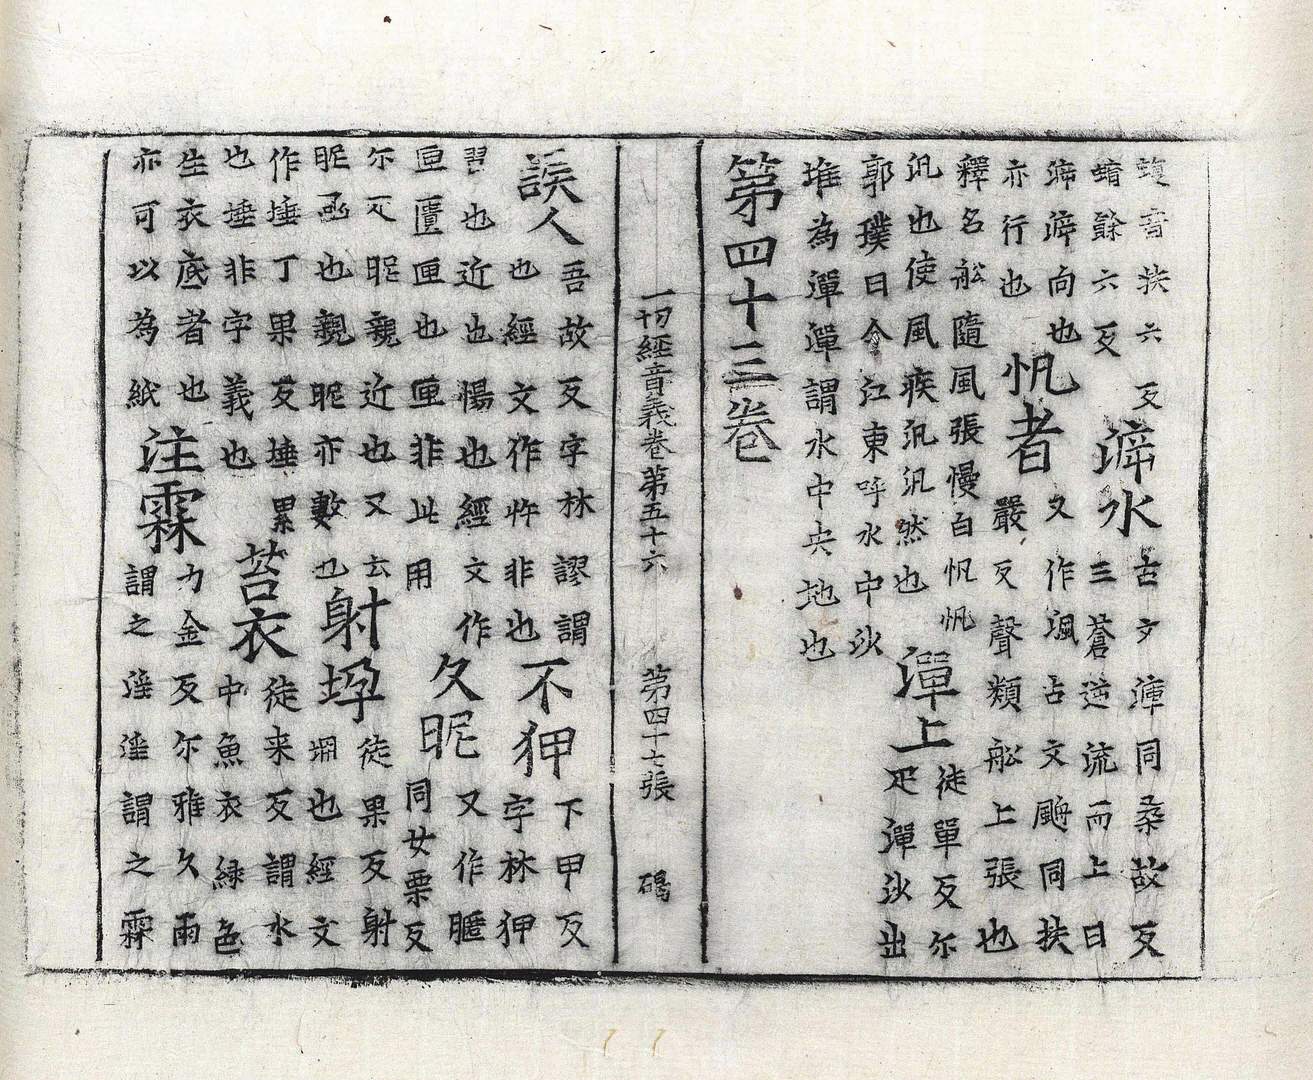 蝮音扶六反
蝤餘六反
泝水
古文㴑同桑故反
三蒼逆流而上曰
泝泝向也
亦行也
帆者
又作颿古文䑺同扶
嚴反聲類船上張也
釋名船隨風張幔曰帆帆
汎也使風疾汎汎然也
潬上
徒單反尔
疋潬沙出
郭璞曰今江東呼水中沙
堆為潬潬謂水中央地也
第四十三卷
一切經音義卷第五十六 第四十七張 碣
誤人
吾故反字林謬謂
也經文作忤非也
不狎
下甲反
字林狎
習也近也惕也經文作
匣匱匣也匣非此用
久昵
又作暱
同女栗反
尔疋昵親近也又云
昵亟也親昵亦數也
射垜
徒果反射
堋也經文
作埵丁果反埵累
也埵非字義也
苔衣
徒来反謂水
中魚衣緑色
生衣底者也
亦可以為紙
注霖
力金反尔雅久雨
謂之淫淫謂之霖